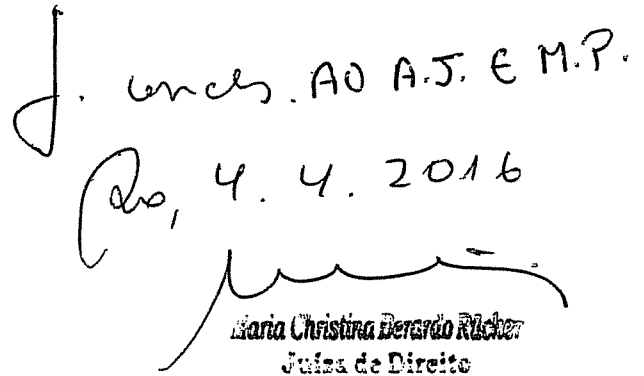 J. concls. AO A.J. E M.P.
Rio, 4. 4. 2016
Maria Christina Berardo Rücker
Juíza de Direito